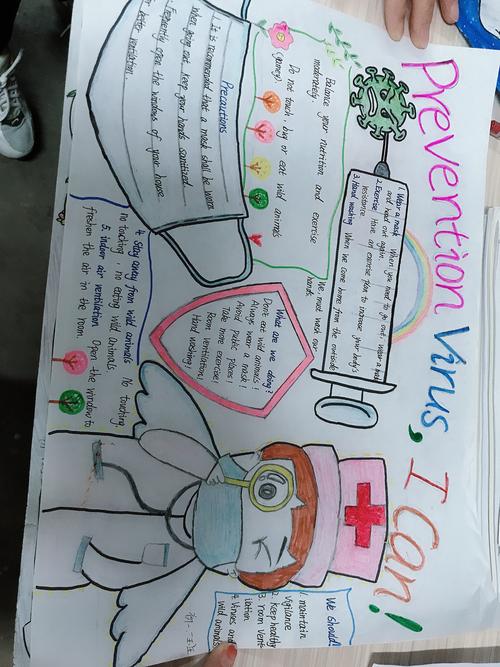 Prevention Virus, I Can!
1. Wear a mask. When you need to go out, wear a mask
and head out again.
2. Exercise Have an exercise plan to increase your body's
resistance.
3. Hand washing When we come home from the outside
We must wash our
hands.
Balance your nutrition and exercise
moderately.
Do not touch, buy or eat wild animals
(game).
Precautions
1. It is recommended that a mask shall be worn
when going out, keep your hands sanitized.
Frequently open the windows of your house
for better ventilation.
What are we doing?
Don't eat wild animals!
Always wear a mask!
Avoid public places!
Take more exercise!
Room ventilation!
Hand washing!
4. Stay away from wild animals No touching
no touching, no eating wild animals
5. indoor air ventilation Open the window to
freshen the air in the room.
We should!
1. maintain
vigilance
2. Keep healthy
3. room vent-
ilation
4. Viruses and
wild animals